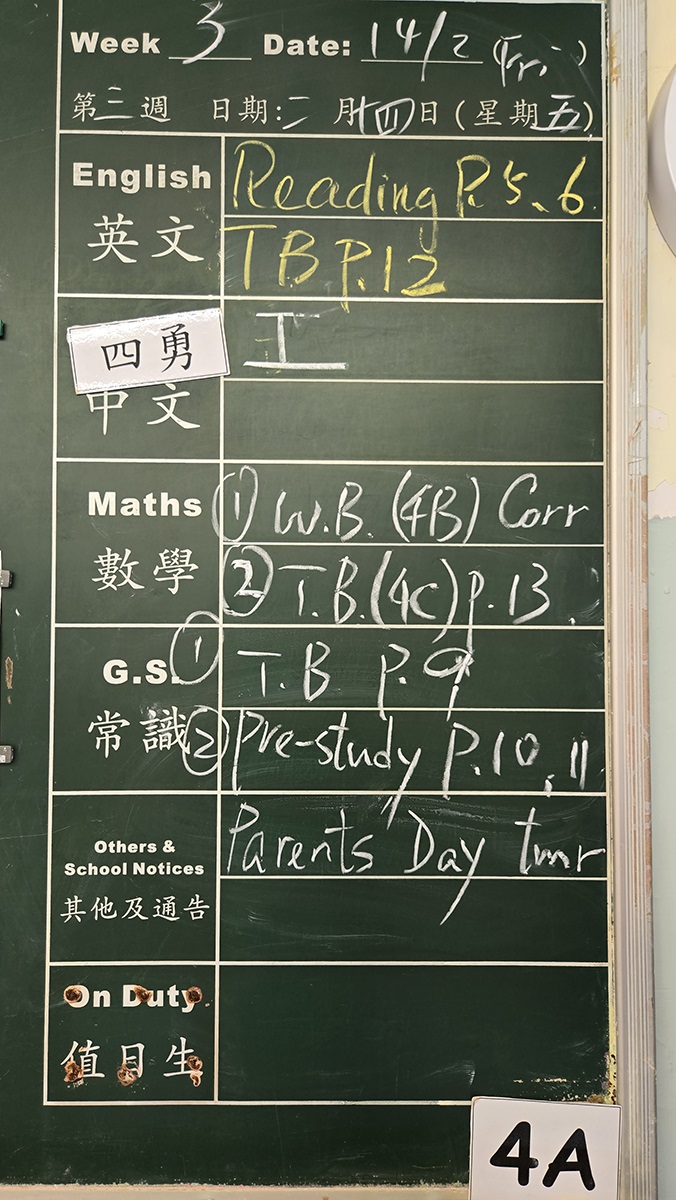 Week 3 Date: 14/2 (Fri)
第三週 日期:二月十四日(星期五)
English Reading P.5、6
英文 T.B P.12
四勇 工
中文
Maths ① W.B. (4B) Corr
數學 ② T.B.(4C) P.13.
G.S. ① T.B P.9
常識 ② Pre-study P.10,11
Others & Parents' Day tmr
School Notices
其他及通告
On Duty
值日生
4A